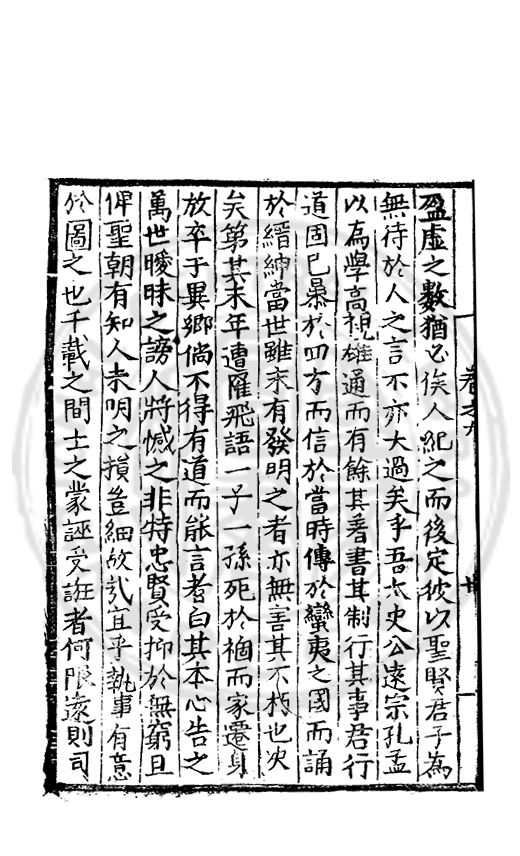 盈虛之數猶必俟人紀之而後定彼以聖賢君子為
無待於人之言不亦大過矣乎吾太史公遠宗孔孟
以為學高視雄通而有餘其著書其制行其事君行
道固已暴於四方而信於當時傳於蠻夷之國而誦
於縉紳當世雖未有發明之者亦無害其不朽也次
矣第其末年遭罹飛語一子一孫死於禍而家遷身
放卒于異鄉倘不得有道而能言者白其本心告之
萬世曖昧之謗人將憾之非特忠賢受抑於無窮且
俾聖朝有知人未明之損豈細故哉宜乎執事有意
於圖之也千載之間士之蒙誣受誑者何限遠則司
卷之九